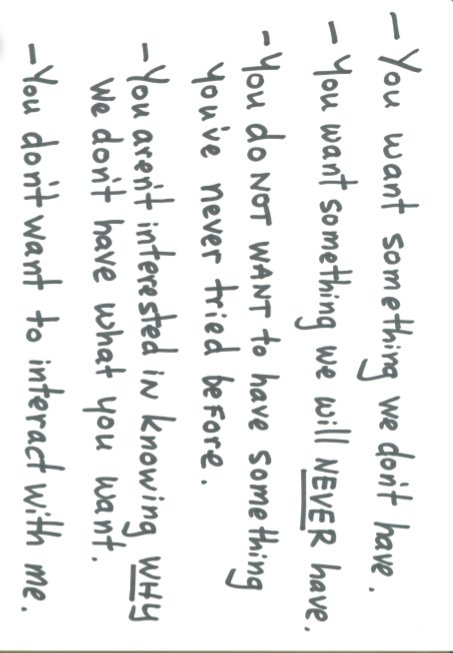 - You want something we don't have.
- You want something we will NEVER have.
- You do NOT WANT to have something
you've never tried before.
- You aren't interested in knowing WHY
we don't have what you want.
- You don't want to interact with me.